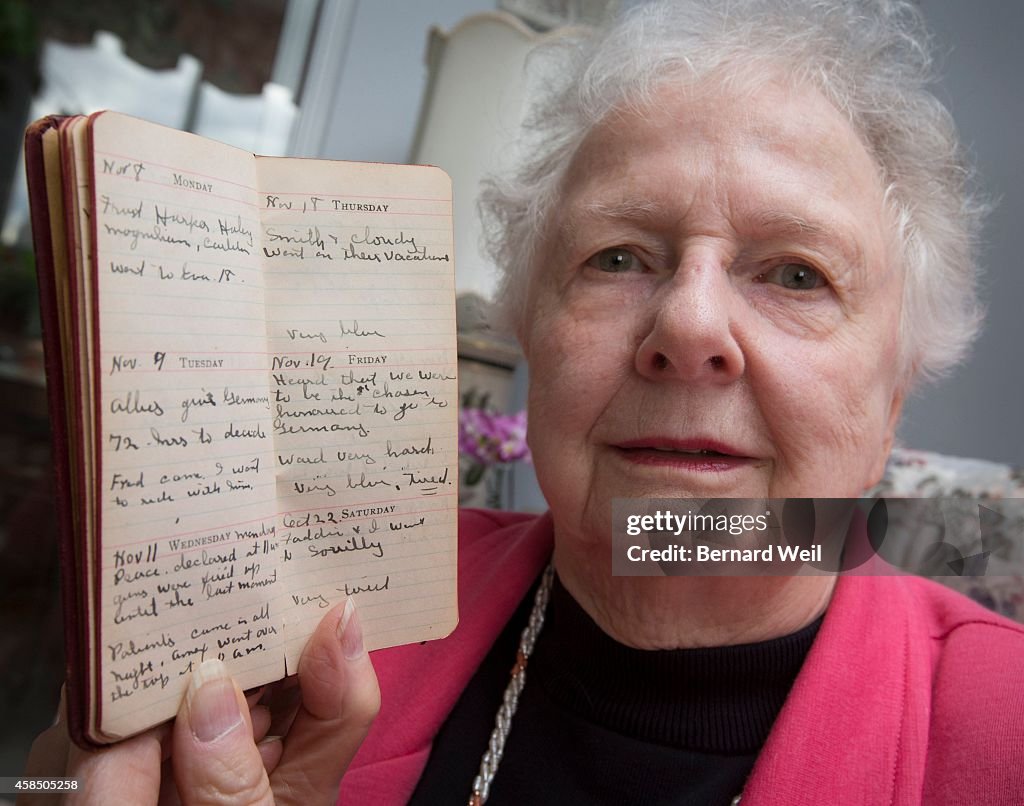 Nov 8 MONDAY
Harper, Haley
went to Eva. 18.
Nov. 9 TUESDAY
Allies give Germany
72 hrs to decide
Fred came. I went
to ride with him.
Nov 11 WEDNESDAY monday
Peace declared at 11
guns were fired up
until the last moment
Patients came in all
night, amex went over
the top at am.
Nov, 18 THURSDAY
Smith & Cloudy
went on their vacations
very blue
Nov. 19 FRIDAY
Heard that we were
to be the "chosen
honoured to go to
Germany.
Ward very hard.
Very blue, Tired.
Oct 22. SATURDAY
& I went
to Souilly
very tired
gettyimages®
Credit: Bernard Weil
458505258